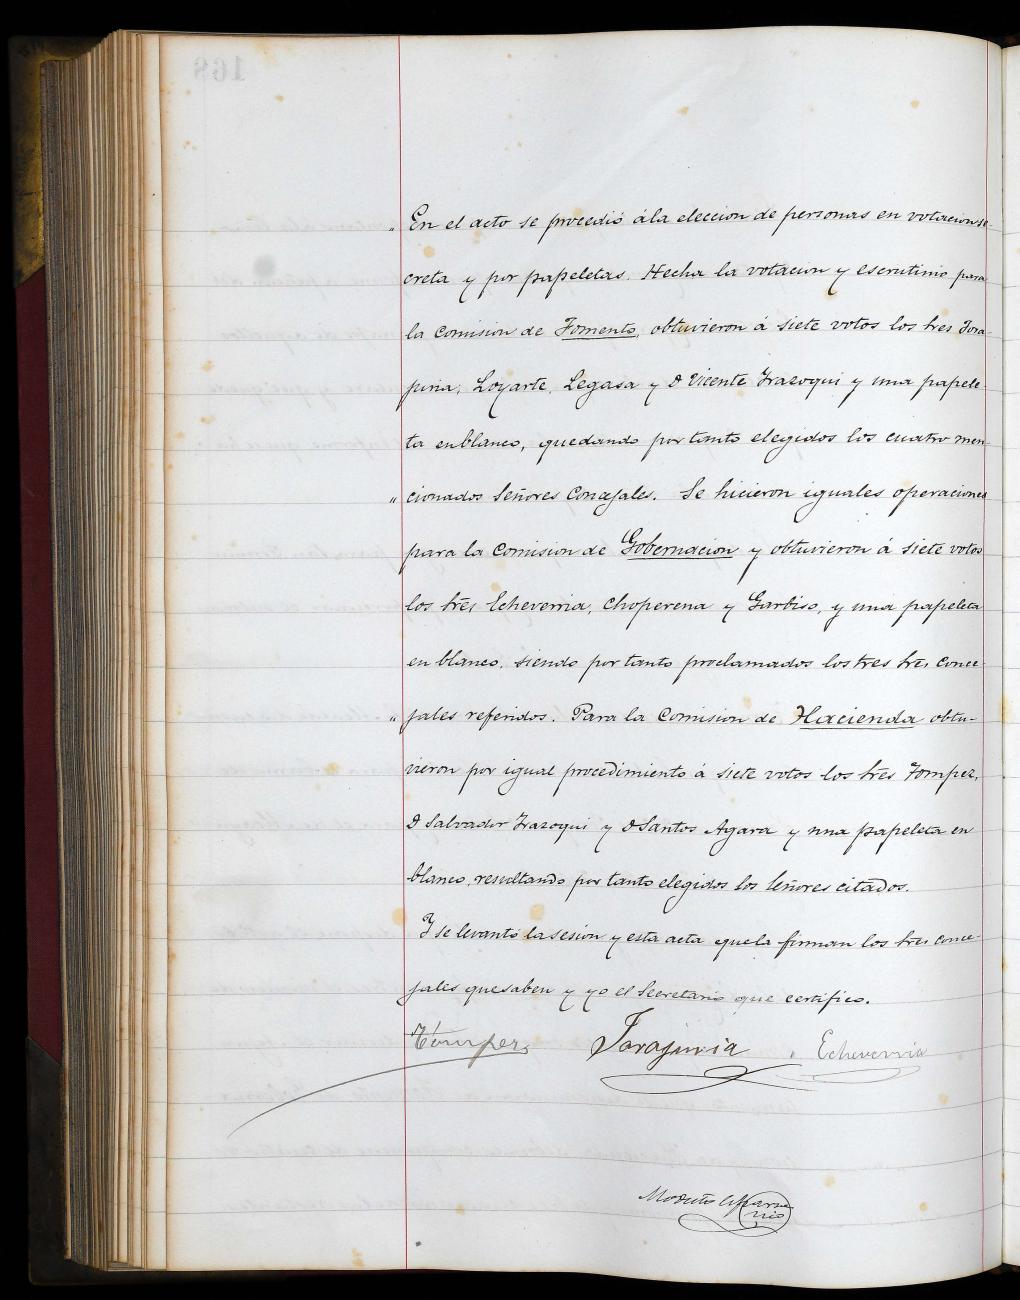 „ En el acto se procedió á la eleccion de personas en votacion se-
creta y por papeletas. Hecha la votacion y escrutinio para
la Comision de Fomento, obtuvieron á siete votos los Sres
Loyarte, Legasa y D Vicente Irazoqui y una papele-
ta en blanco, quedando por tanto elegidos los cuatro men-
„ cionados Señores Concejales. Se hicieron iguales operaciones
para la Comision de Gobernacion y obtuvieron á siete votos
los Sres Echeverria, Choperena y Garbiso, y una papeleta
en blanco, siendo por tanto proclamados los tres Sres Conce-
„ jales referidos. Para la Comision de Hacienda obtu-
vieron por igual procedimiento á siete votos los Sres
D Salvador Irazoqui y D Santos Agara y una papeleta en
blanco, resultando por tanto elegidos los Señores citados.
Y se levantó la sesion y esta acta que la firman los Sres Conce-
jales que saben y yo el Secretario que certifico.
Echeverria
168